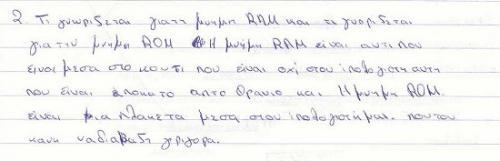 2. Τι γνωριζεται γιατη μνημη RAM και τι γνοριζεται
γιατην μνημη ROM Η μνημη RAM ειναι αυτι που
ειναι μεσα στο κουτι που ειναι οχι στον ιπολογιστη αυτη
που ειναι αποκατο απτο θρανιο και Η μνημη ROM.
ειναι μια πλακετα μεσα στον ιπολογιστημας. που τον
κανη να διαβαζη γριγορα.